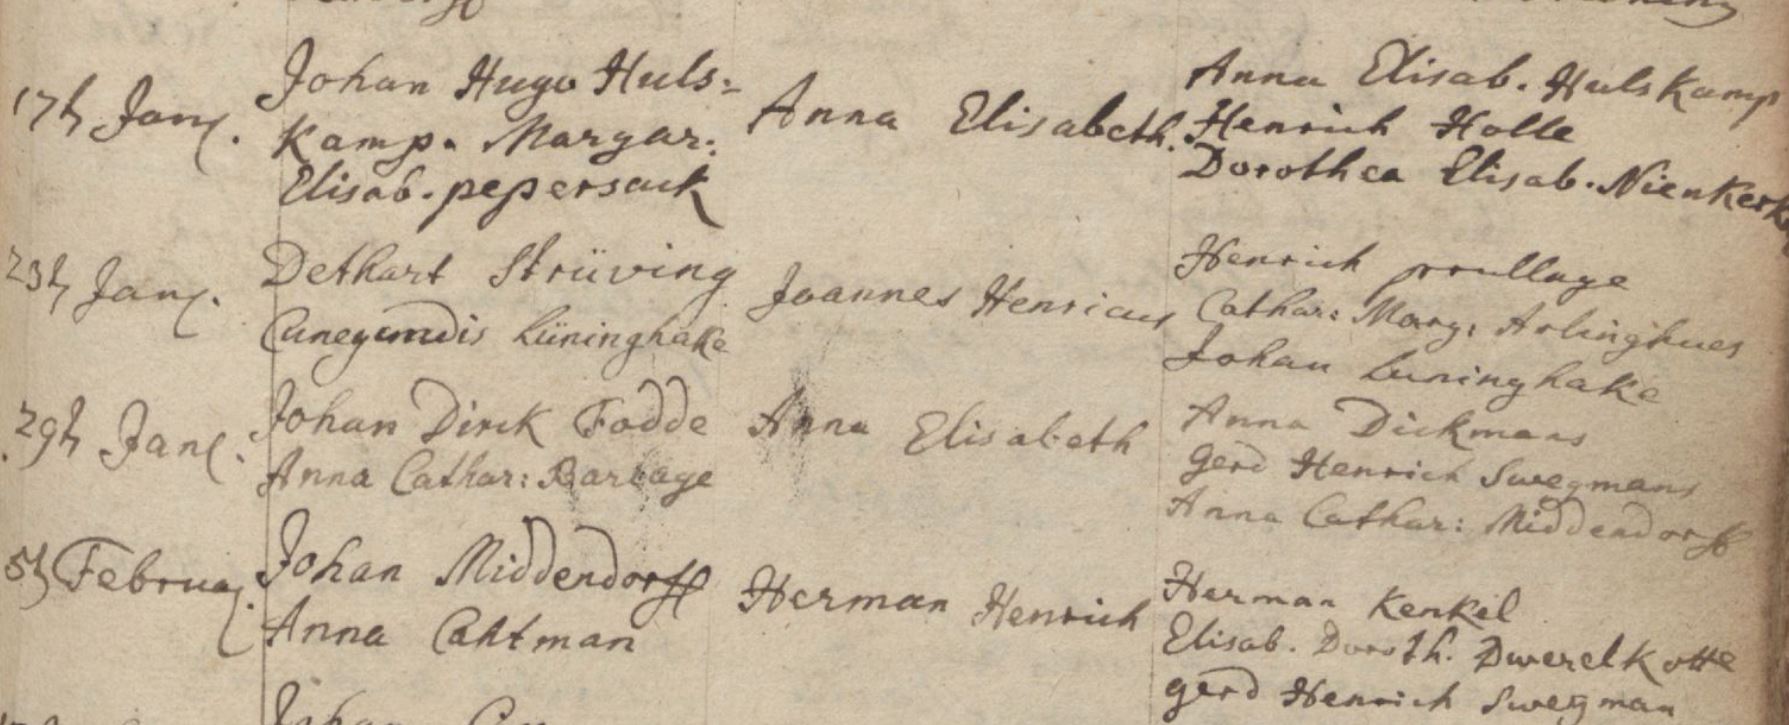 17t Jan.
Johan Hugo Huls=
Kamp. Margar:
Elisab. pepersack
Anna Elisabeth.
Anna Elisab. Hulskamp
Henrich Holle
Dorothea Elisab. Nienkerk
23t Jan.
Dethart Strüving
Cunegundis Lüninghake
Joannes Henricus
Henrich prullage
Cathar: Marg: Arlinghues
Johan Luninghake
29t Jan.
Johan Dirck Fodde
Anna Cathar: Barlage
Anna Elisabeth
Anna Dickmans
gerd Henrich Swegmans
Anna Cathar: Middendorff
5t Februa.
Johan Middendorff
Anna Cahtman
Herman Henrich
Herman Kenkel
Elisab. Doroth. Dwerelkotte
gerd Henrich Swegman
Johan